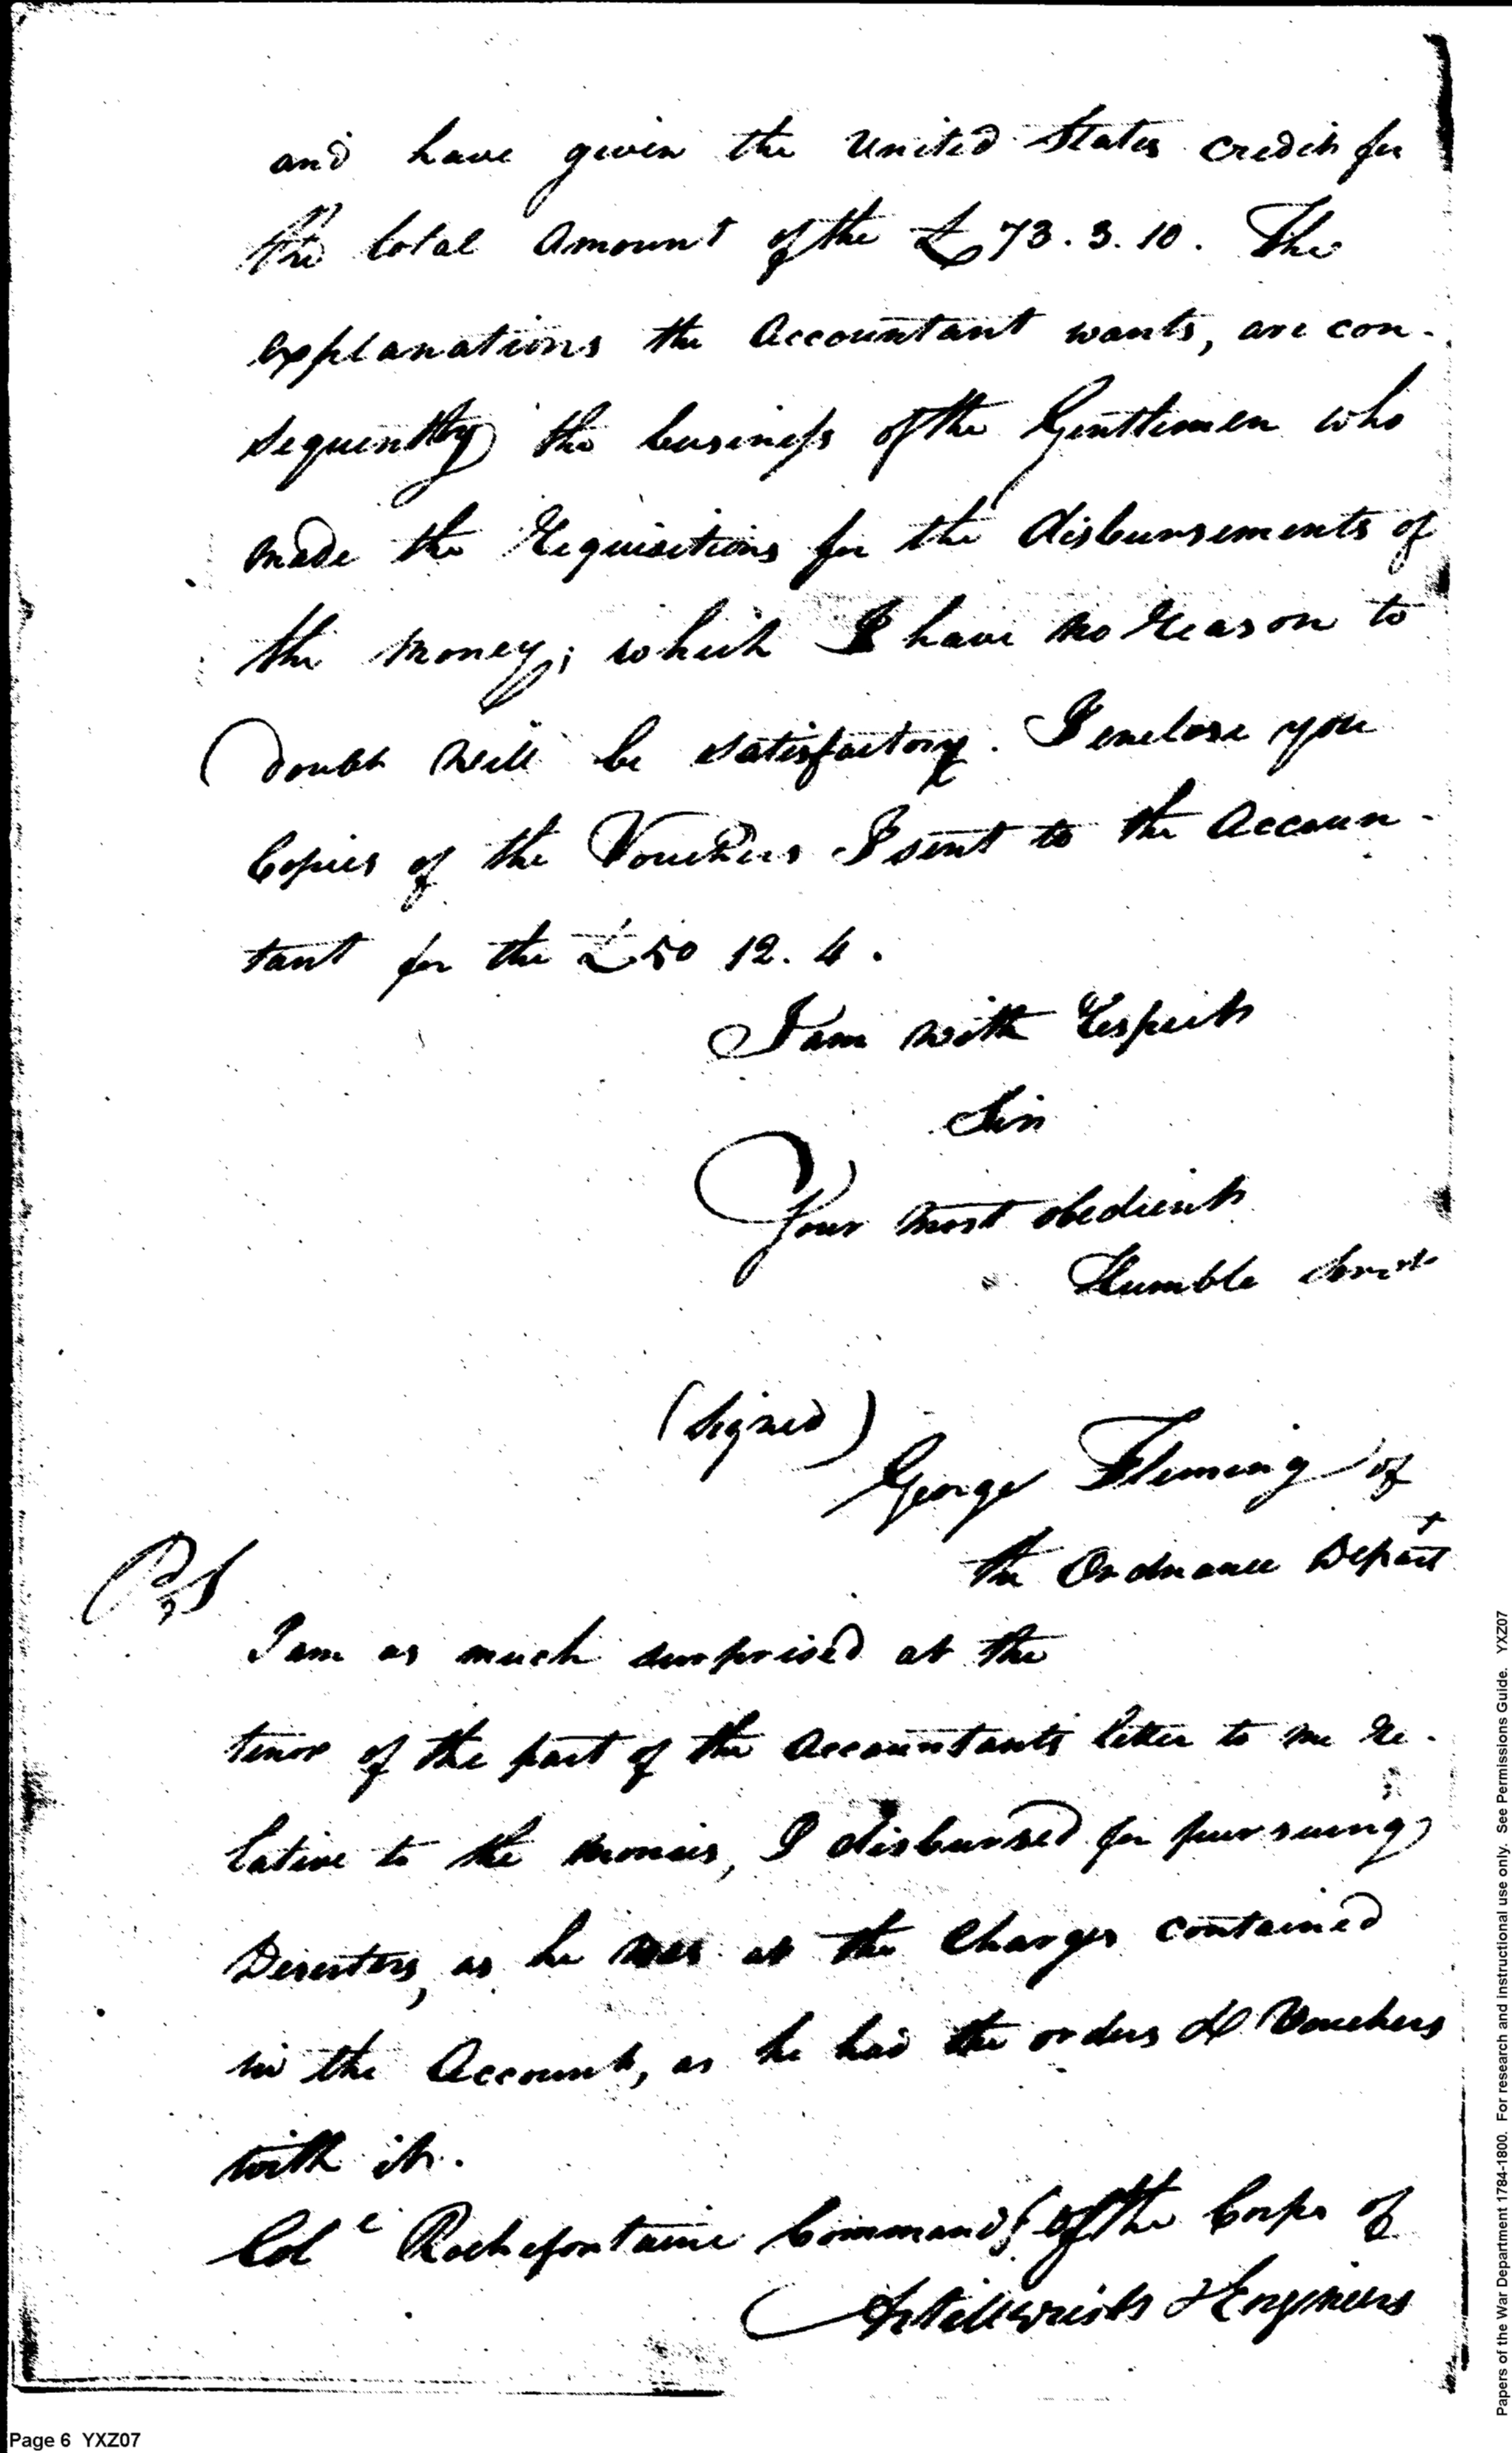 and have given the United States credit for
the total Amount of the £73.3.10. The
explanations the Accountant wants, are con-
sequently the business of the Gentlemen who
made the Requisitions for the disbursements of
the Money; which I have no reason to
doubt will be satisfactory. I enclose you
Copies of the Vouchers I sent to the Accoun-
tant for the £50 12. 4.
I am with Respect
Sir
Your most obedient
Humble Servt
(Signed)
George Fleming of
the Ordnance Depart
PS
I am as much surprised at the
tenor of the part of the Accountants letter to me re-
lative to the monies, I disbursed for pursuing
Deserters, as he was at the Charges contained
in the Account, as he had the orders & Vouchers
with it.
Col Rochefontaine Command of the Corps of
Artillerists & Engineers
Page 6 YXZ07
Papers of the War Department 1784-1800. For research and instructional use only. See Permissions Guide. YXZ07